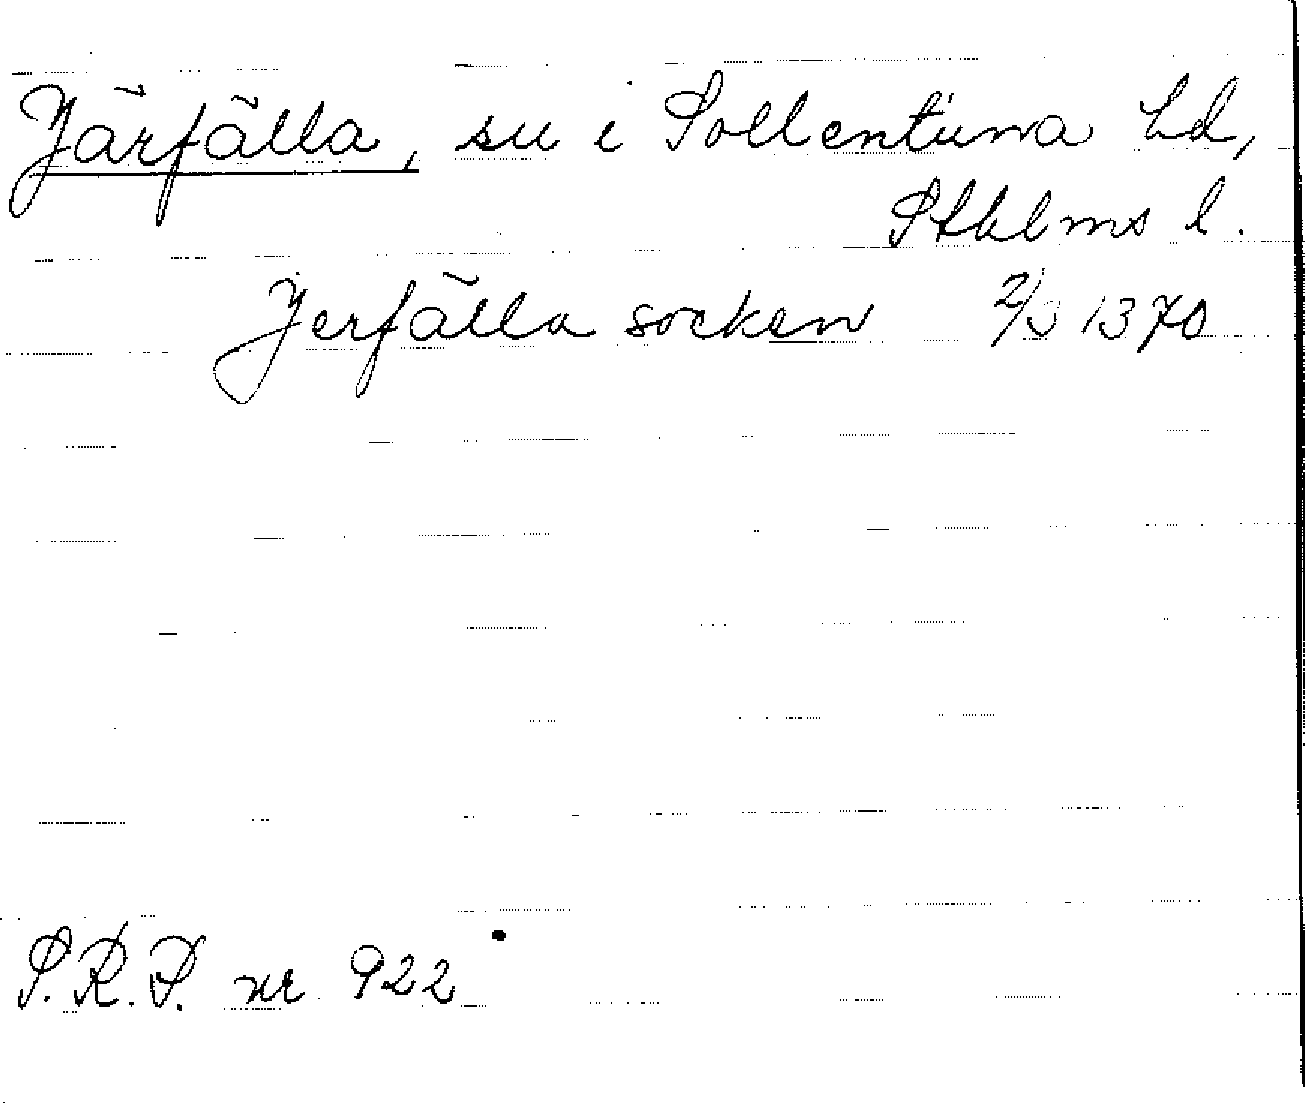 Järfälla, sn i Sollentuna hd,
Sthlms l.
Jerfälla socken 2/3 1370
S.R.P. nr 922